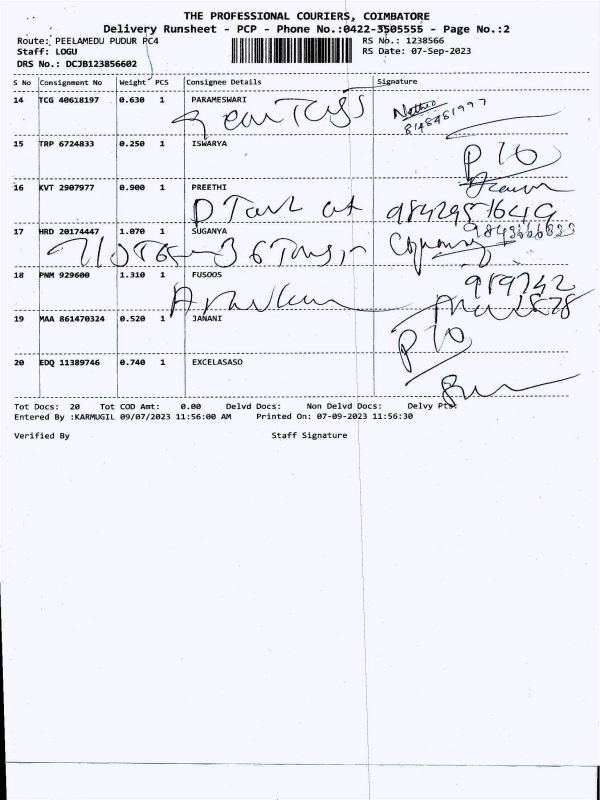 THE PROFESSIONAL COURIERS, COIMBATORE
Delivery Runsheet - PCP - Phone No.:0422-3505555 - Page No.:2
Route: PEELAMEDU PUDUR PC4
RS No.: 1238566
Staff: LOGU
RS Date: 07-Sep-2023
DRS No.: DCJB123856602
S No Consignment No Weight PCS Consignee Details Signature
14 TCG 40618197 0.630 1 PARAMESWARI
8148481997
15 TRP 6724833 0.250 1 ISWARYA
16 KVT 2907977 0.900 1 PREETHI
9842951649
17 HRD 20174447 1.070 1 SUGANYA
18 PNM 929600 1.310 1 FUSOOS
19 MAA 861470324 0.520 1 JANANI
20 EDQ 11389746 0.740 1 EXCELASASO
Tot Docs: 20 Tot COD Amt: 0.00 Delvd Docs: Non Delvd Docs: Delvy Pts:
Entered By :KARMUGIL 09/07/2023 11:56:00 AM Printed On: 07-09-2023 11:56:30
Verified By Staff Signature